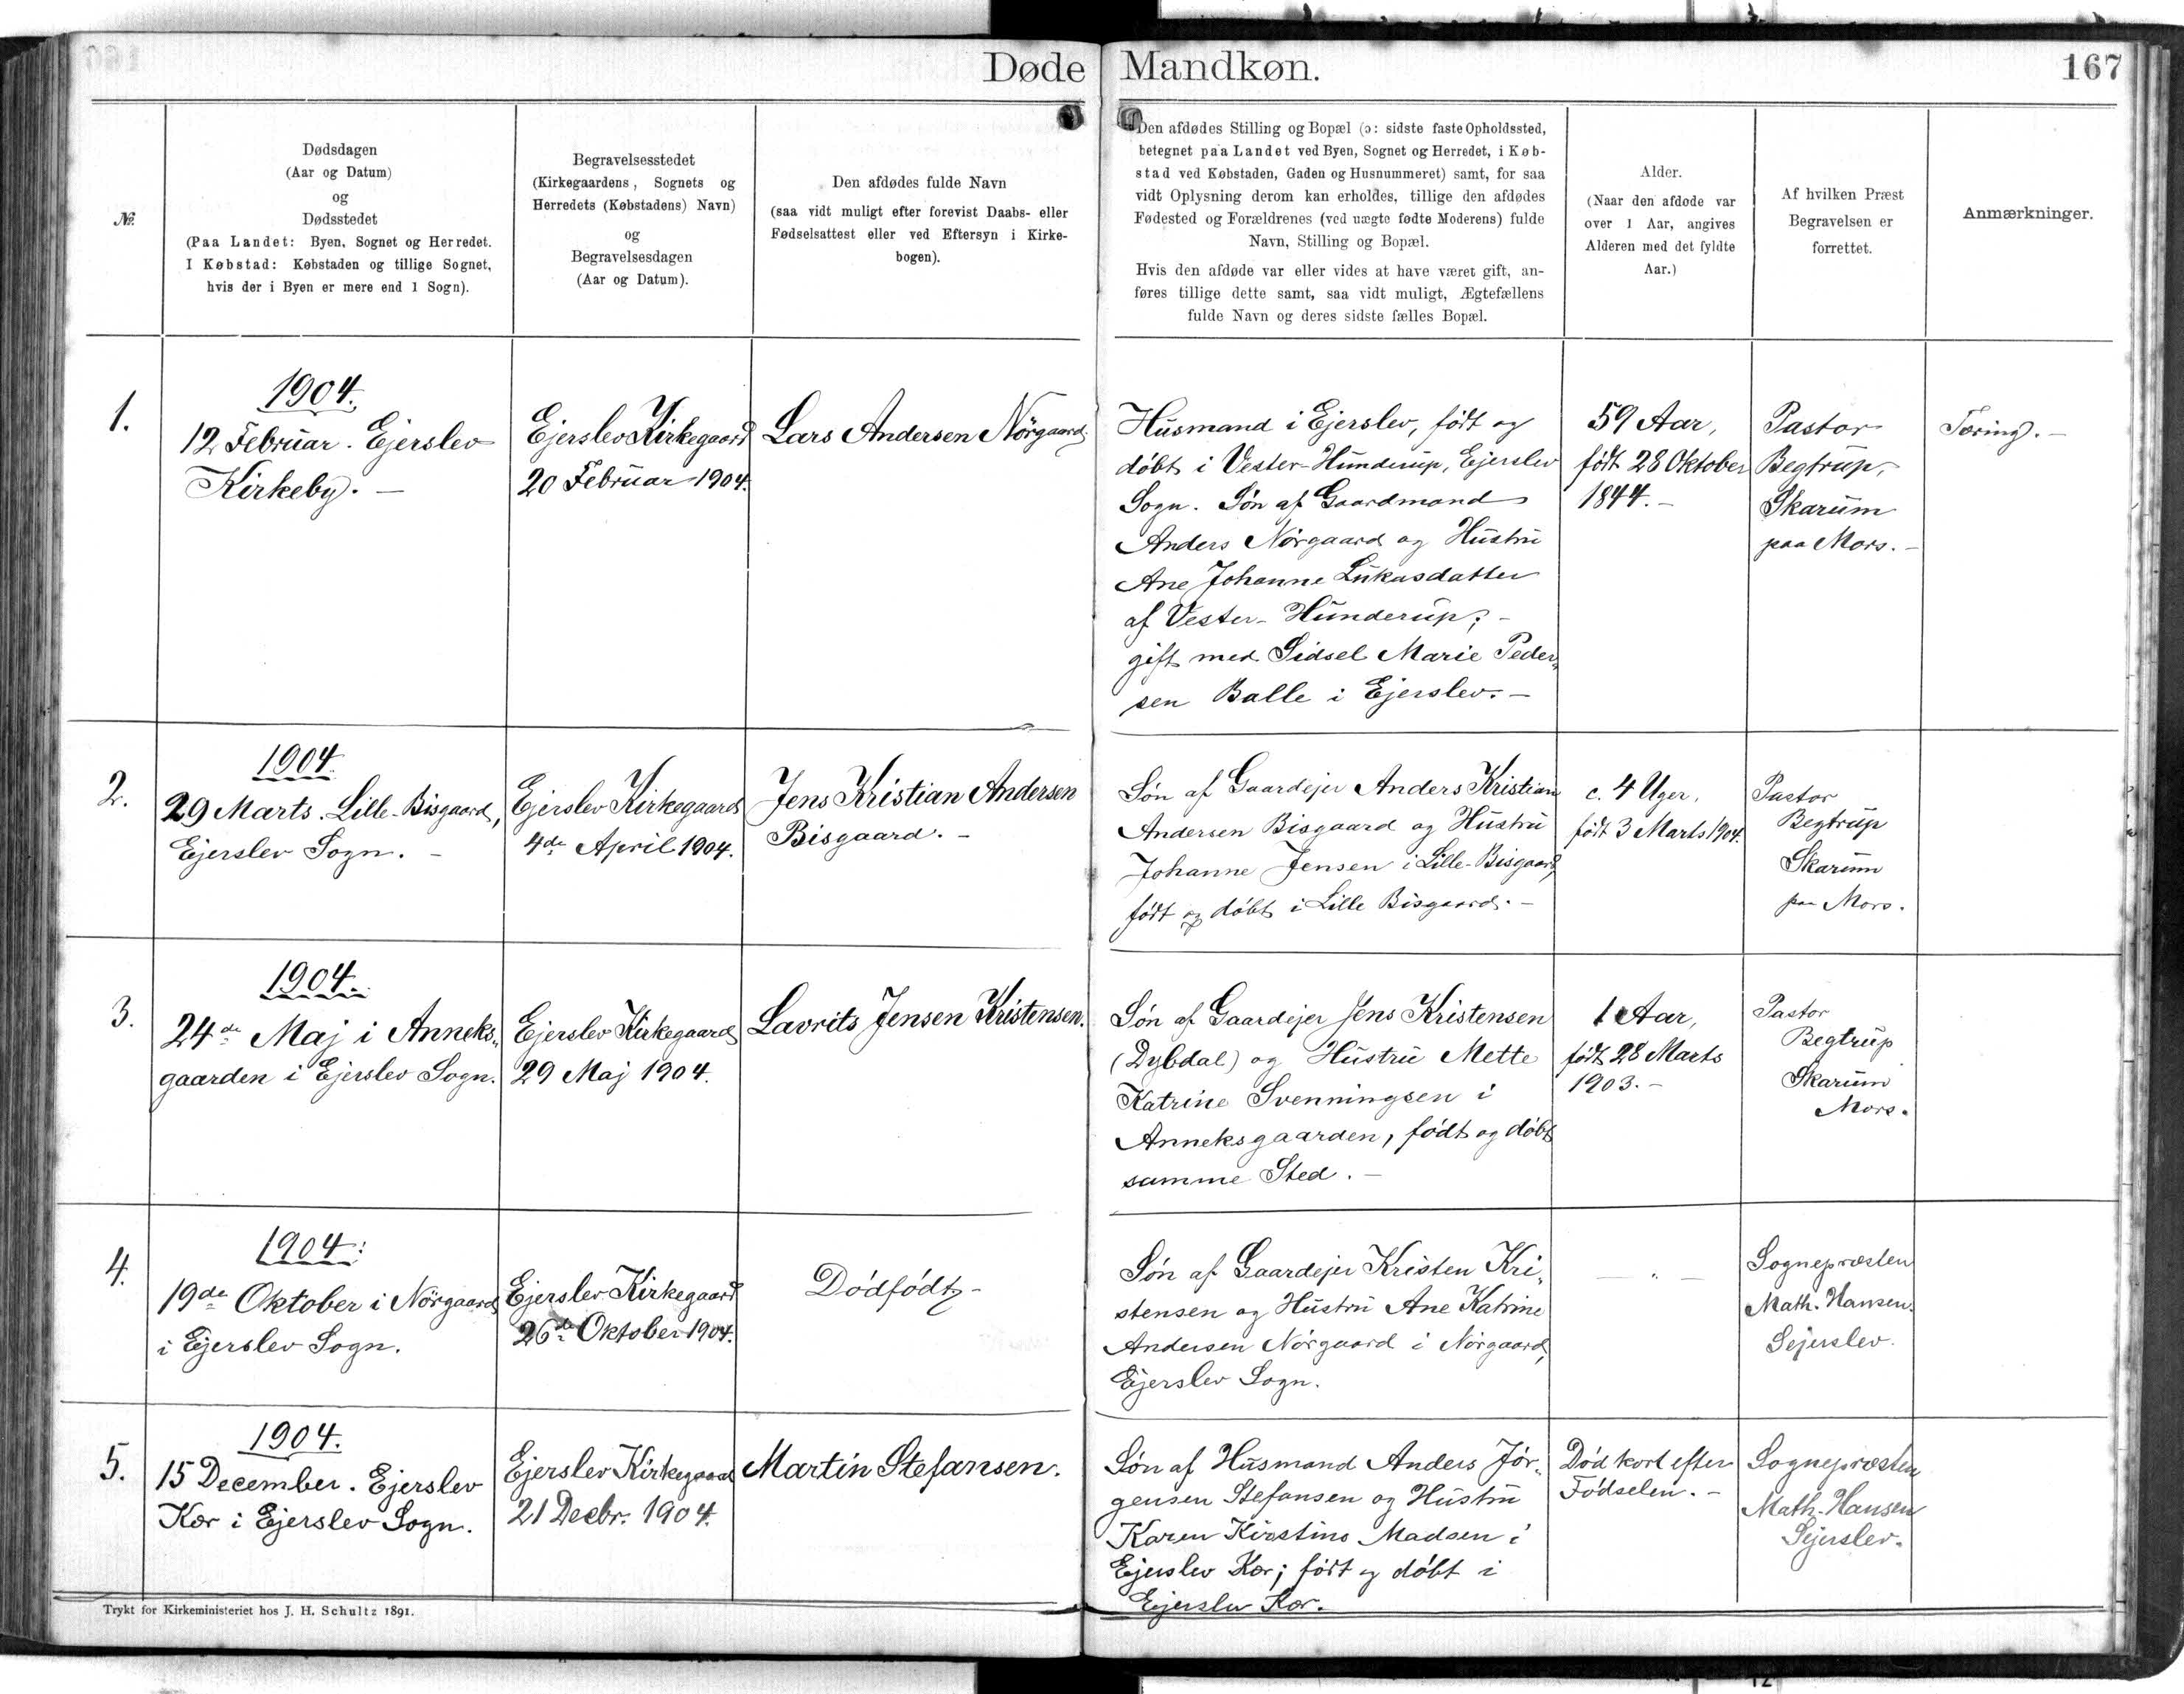 Døde Mandkøn.
167
№
Dødsdagen
(Aar og Datum)
og
Dødsstedet
(Paa Landet: Byen, Sognet og Herredet.
I Købstad: Købstaden og tillige Sognet,
hvis der i Byen er mere end 1 Sogn).
Begravelsesstedet
(Kirkegaardens, Sognets og
Herredets (Købstadens) Navn)
og
Begravelsesdagen
(Aar og Datum).
Den afdødes fulde Navn
(saa vidt muligt efter forevist Daabs- eller
Fødselsattest eller ved Eftersyn i Kirke-
bogen).
Den afdødes Stilling og Bopæl (ɔ: sidste faste Opholdssted,
betegnet paa Landet ved Byen, Sognet og Herredet, i Køb-
stad ved Købstaden, Gaden og Husnummeret) samt, for saa
vidt Oplysning derom kan erholdes, tillige den afdødes
Fødested og Forældrenes (ved uægte fødte Moderens) fulde
Navn, Stilling og Bopæl.
Hvis den afdøde var eller vides at have været gift, an-
føres tillige dette samt, saa vidt muligt, Ægtefællens
fulde Navn og deres sidste fælles Bopæl.
Alder.
(Naar den afdøde var
over 1 Aar, angives
Alderen med det fyldte
Aar.)
Af hvilken Præst
Begravelsen er
forrettet.
Anmærkninger.
1.
1904.
12 Februar. Ejerslev
Kirkeby. —
Ejerslev Kirkegaard
20 Februar 1904.
Lars Andersen Nörgaard
Husmand i Ejerslev, född og
döbt i Vester-Hunderup, Ejerslev
Sogn. Sön af Gaardmand
Anders Nörgaard og Hustru
Ane Johanne Lukasdatter
af Vester-Hunderup; -
gift med Sidsel Marie Peder-
sen Balle i Ejerslev. —
59 Aar,
födt 28 Oktober
1844. -
Pastor
Begtrup,
Skarum
paa Mors. -
Tæring. -
2.
1904.
29 Marts. Lille-Bisgaard,
Ejerslev Sogn. -
Ejerslev Kirkegaard
4de April 1904.
Jens Kristian Andersen
Bisgaard. -
Sön af Gaardejer Anders Kristian
Andersen Bisgaard og Hustru
Johanne Jensen i Lille-Bisgaard,
födt og döbt i Lille Bisgaard. -
c. 4 Uger.
födt 3 Marts 1904.
Pastor
Begtrup
Skarum
paa Mors.
3.
1904.
24de Maj i Anneks-
gaarden i Ejerslev Sogn.
Ejerslev Kirkegaard
29 Maj 1904.
Lavrits Jensen Kristensen.
Sön af Gaardejer Jens Kristensen
(Dybdal) og Hustru Mette
Katrine Svenningsen i
Anneksgaarden, födt og döbt
samme Sted. -
1 Aar,
födt 28 Marts
1903. -
Pastor
Begtrup
Skarum
Mors.
4.
1904.
19de Oktober i Nörgaard
i Ejerslev Sogn.
Ejerslev Kirkegaard
26de Oktober 1904.
Dödfödt -
Sön af Gaardejer Kristen Kri-
stensen og Hustru Ane Katrine
Andersen Nörgaard i Nörgaard,
Ejerslev Sogn.
— " —
Sognepræsten
Math. Hansen.
Sejerslev.
5.
1904.
15 December. Ejerslev
Kær i Ejerslev Sogn.
Ejerslev Kirkegaard
21 Decbr. 1904.
Martin Stefansen.
Sön af Husmand Anders Jör-
gensen Stefansen og Hustru
Karen Kirstine Madsen i
Ejerslev Kær; födt og döbt i
Ejerslev Kær.
Död kort efter
Födselen. -
Sognepræsten
Math. Hansen
Sejerslev.
Trykt for Kirkeministeriet hos J. H. Schultz 1891.